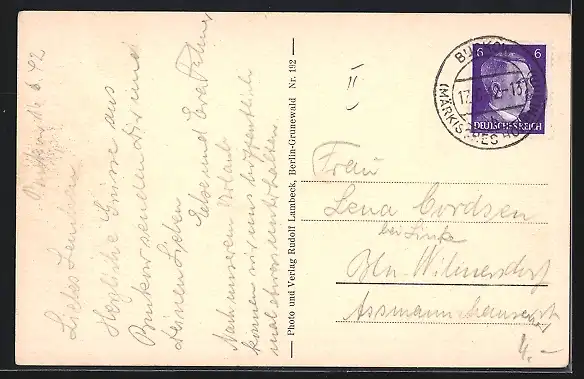 Buckow, d. 16.6.42
Liebes Lenchen
Herzliche Grüsse aus
Buckow senden Dir und
Deinen Lieben
Else und Eva
Nach unserem Urlaub
können wir uns hoffentlich
mal etwas unterhalten
Photo und Verlag Rudolf Lambeck, Berlin-Grunewald Nr. 192
II
BUCKOW
17.
(MÄRKISCHES
6 6
DEUTSCHES REICH
Frau
Lena Cordsen
bei Linke
Bln-Wilmersdorf
Assmannshauserstr
4.-